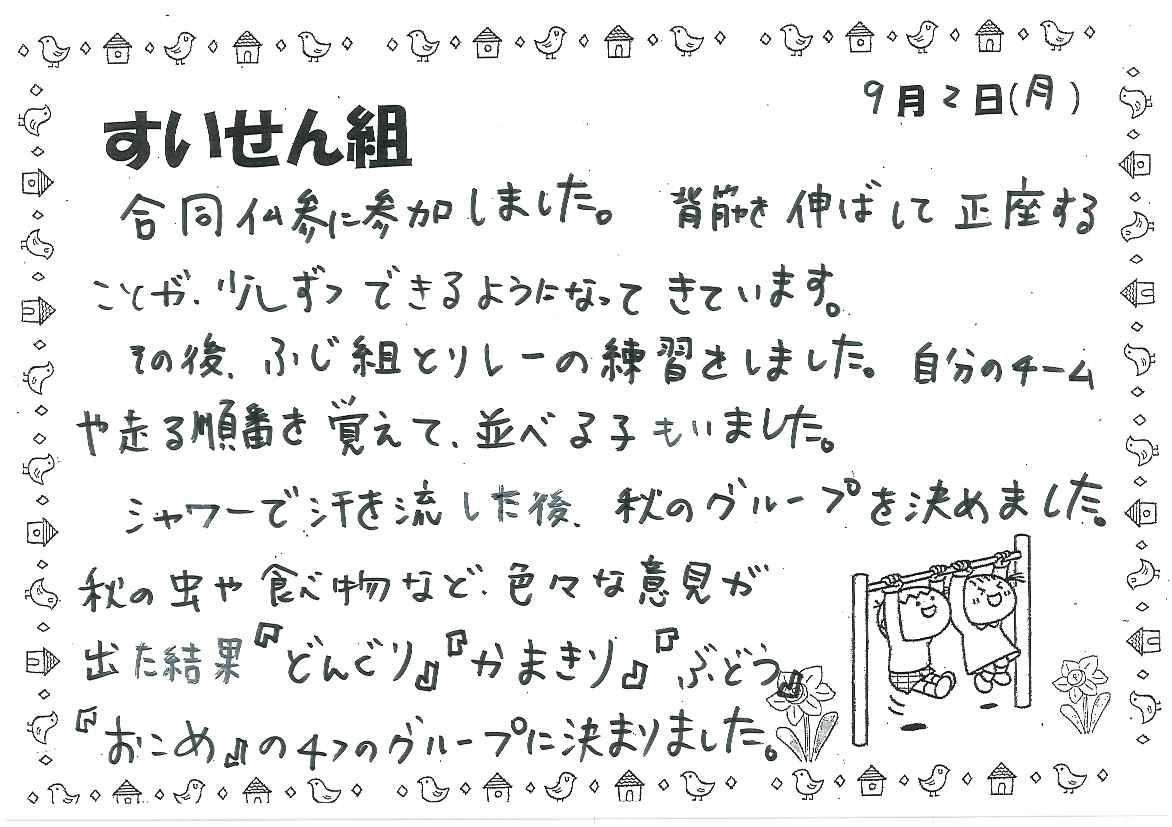 9月2日(月)
すいせん組
合同仏参に参加しました。 背筋を伸ばして正座する
ことが、少しずつできるようになってきています。
その後、ふじ組とリレーの練習をしました。自分のチーム
や走る順番を覚えて、並べる子もいました。
シャワーで汗を流した後、秋のグループを決めました。
秋の虫や食べ物など、色々な意見が
出た結果『どんぐり』『かまきり』『ぶどう』
『おこめ』の4つのグループに決まりました。